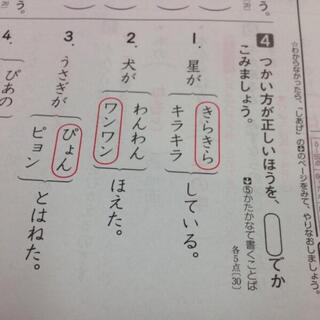 ☆わからなかったら、「しあげ」の➡のページをみて、やりなおしましょう。
4 つかい方が正しいほうを、◯でか
こみましょう。
➡⑤かたかなで書くことば
各5点〔30〕
1. 星が
きらきら
キラキラ
している。
2. 犬が
わんわん
ワンワン
ほえた。
3. うさぎが
ぴょん
ピョン
とはねた。
4. ぴあの
う。